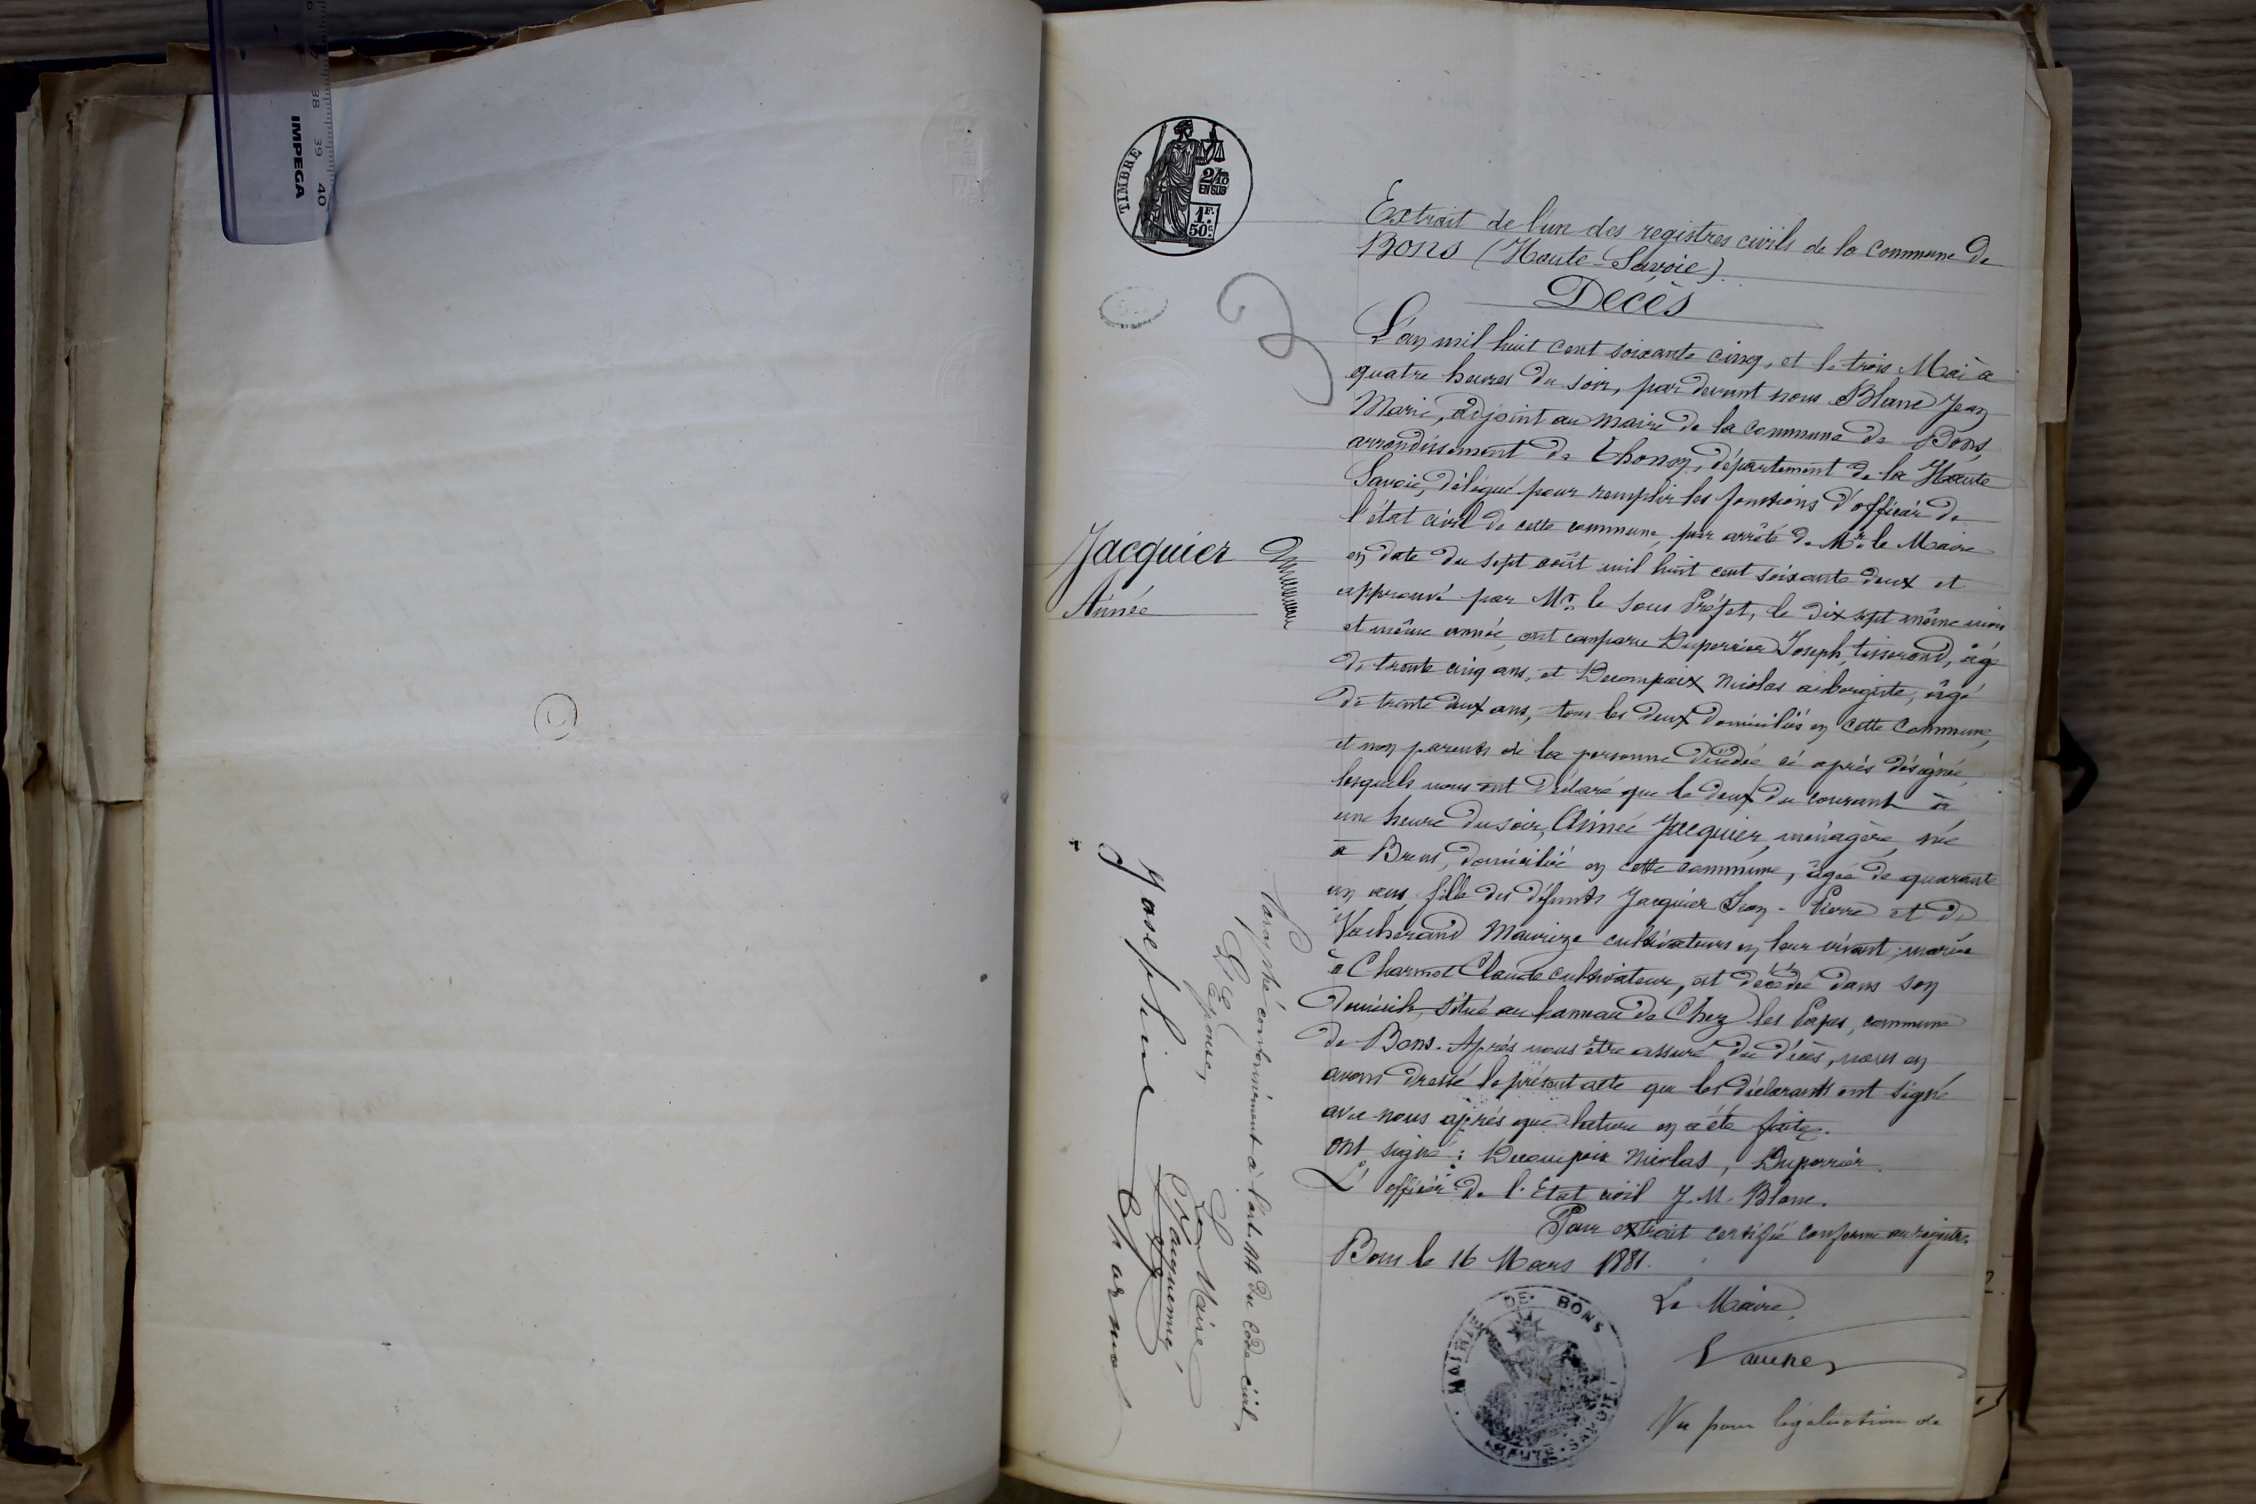 IMPEGA
38 39 40
TIMBRE
2/10
EN SUS
1F.
50c.
Extrait de l'un des registres civils de la commune de
Bons (Haute-Savoie).
Décès
L'an mil huit cent soixante cinq, et le trois Mai à
quatre heures du soir, par devant nous Blanc Jean
Marie, adjoint au maire de la commune de Bons,
arrondissement de Thonon, département de la Haute
Savoie, délégué pour remplir les fonctions d'officier de
l'état civil de cette commune, par arrêté de Mr. le Maire
en date du sept août mil huit cent soixante deux et
approuvé par Mr. le Sous Préfet, le dix sept même mois
et même année, ont comparu Duperrier Joseph, tisserand, âgé
de trente cinq ans, et Decompoix Nicolas aubergiste, âgé
de trente deux ans, tous les deux domiciliés en cette commune,
et non parents de la personne décédée ci après désignée,
lesquels nous ont déclaré que le deux du courant à
une heure du soir, Aimée Jacquier, ménagère, née
à Brens, domiciliée en cette commune, âgée de quarante
un ans, fille des défunts Jacquier Jean-Pierre et de
Vacherand Maurize cultivateurs en leur vivant, mariée
à Charmot Claude cultivateur, est décédée dans son
domicile, situé au hameau de Chez les Papes, commune
de Bons. Après nous être assuré du décès, nous en
avons dressé le présent acte que les déclarants ont signé
avec nous après que lecture en a été faite.
ont signé : Decompoix Nicolas, Duperrier.
L'officier de l'Etat civil J. M. Blanc.
Pour extrait certifié conforme au registre.
Bons le 16 Mars 1881.
Le Maire,
Vu pour légalisation de
MAIRIE DE BONS
HAUTE-SAVOIE
Jacquier
Aimée
Paraphé conformément à l'art. 44 du Code civil,
L'Epouse,
Le Maire
Josephine Charmot